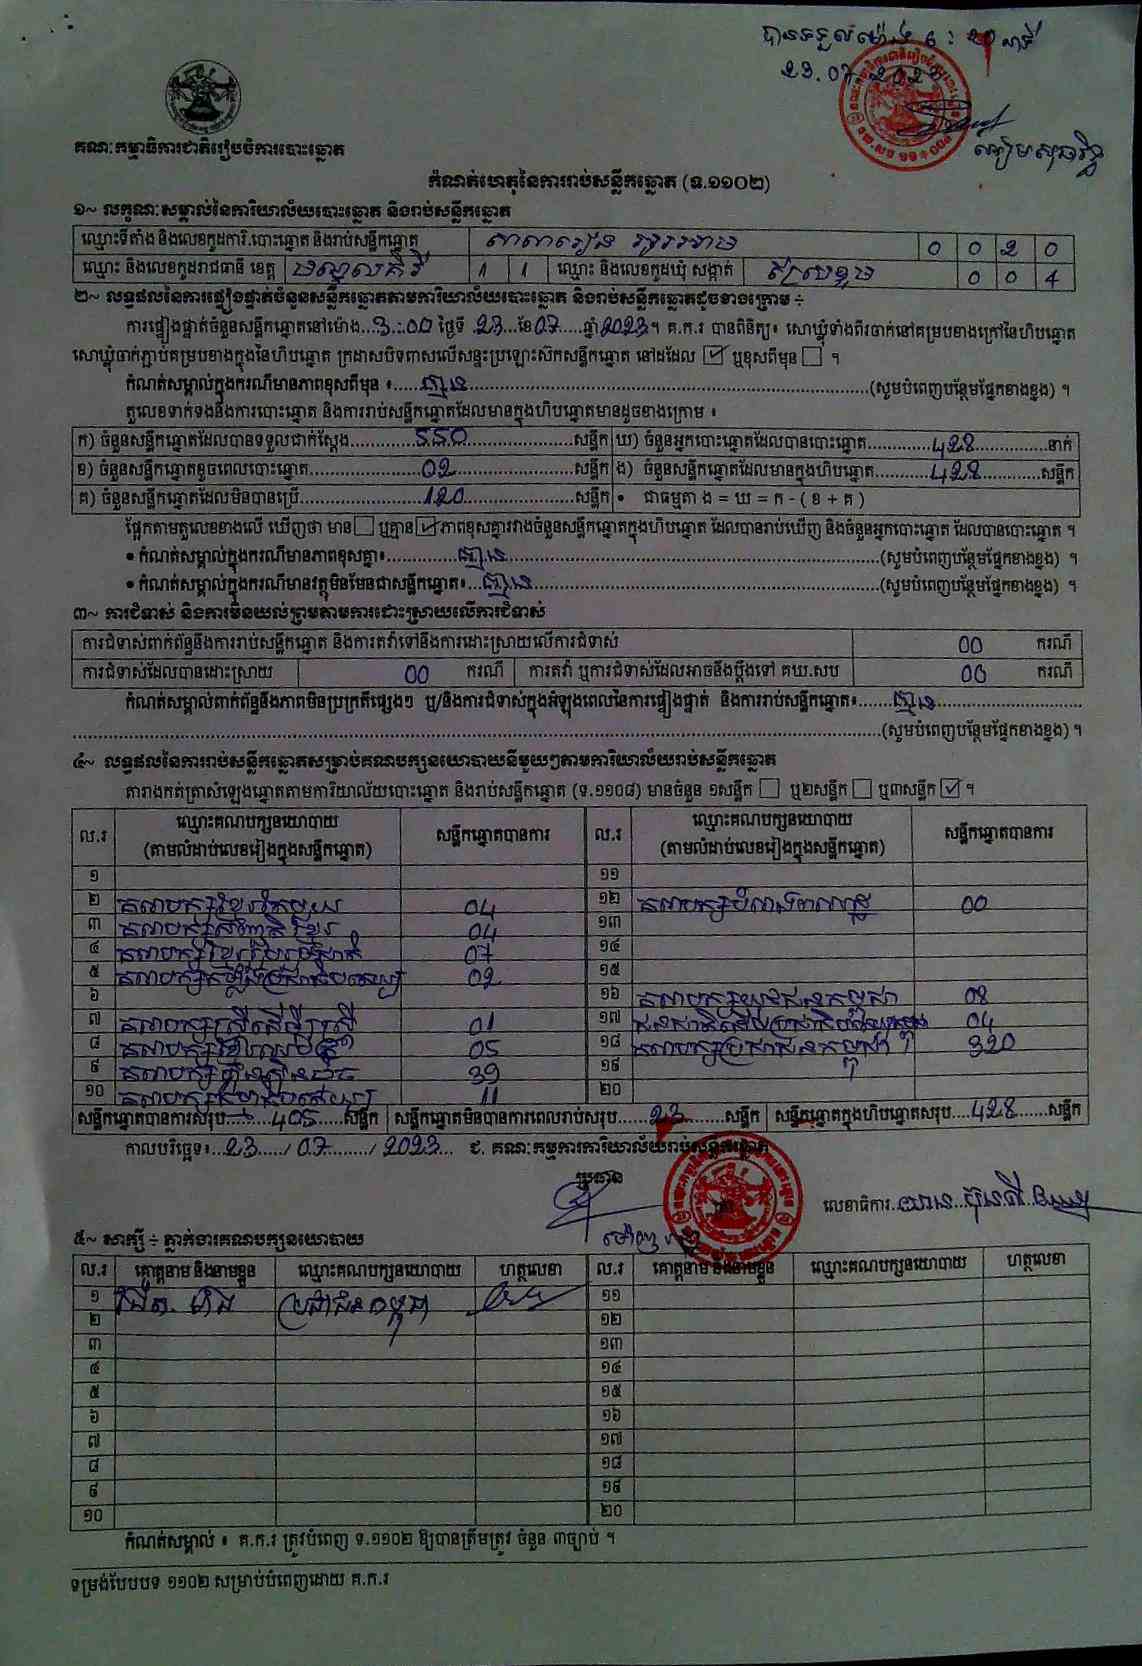 បានទទួលម៉ោង 6 : 20 នាទី
23.07.2023
គណៈកម្មាធិការជាតិរៀបចំការបោះឆ្នោត
កំណត់ហេតុនៃការរាប់សន្លឹកឆ្នោត (ទ.១១០២)
១~ លក្ខណៈសម្គាល់នៃការិយាល័យបោះឆ្នោត និងរាប់សន្លឹកឆ្នោត
ឈ្មោះទីតាំង និងលេខកូដការិ.បោះឆ្នោត និងរាប់សន្លឹកឆ្នោត សាលារៀន 0 0 2 0
ឈ្មោះ និងលេខកូដរាជធានី ខេត្ត មណ្ឌលគិរី 1 1 ឈ្មោះ និងលេខកូដឃុំ សង្កាត់ ស្រែខ្ទុម 0 0 4
២~ លទ្ធផលនៃការផ្ទៀងផ្ទាត់ចំនួនសន្លឹកឆ្នោតតាមការិយាល័យបោះឆ្នោត និងរាប់សន្លឹកឆ្នោតដូចខាងក្រោម ÷
ការផ្ទៀងផ្ទាត់ចំនួនសន្លឹកឆ្នោតនៅម៉ោង...3:00 ថ្ងៃទី 23...ខែ07.....ឆ្នាំ2023។ គ.ក.រ បានពិនិត្យ៖ សោឃ្លុំទាំងពីរចាក់នៅគម្របខាងក្រៅនៃហិបឆ្នោត
សោឃ្លុំចាក់ភ្ជាប់គម្របខាងក្នុងនៃហិបឆ្នោត ក្រដាសបិទពាសលើសន្ទះប្រឡោះស៊កសន្លឹកឆ្នោត នៅដដែល ☑ ឬខុសពីមុន ☐ ។
កំណត់សម្គាល់ក្នុងករណីមានភាពខុសពីមុន ៖......គ្មាន......(សូមបំពេញបន្ថែមផ្នែកខាងខ្នង) ។
តួលេខទាក់ទងនឹងការបោះឆ្នោត និងការរាប់សន្លឹកឆ្នោតដែលមានក្នុងហិបឆ្នោតមានដូចខាងក្រោម ៖
ក) ចំនួនសន្លឹកឆ្នោតដែលបានទទួលជាក់ស្តែង......550......សន្លឹក ឃ) ចំនួនអ្នកបោះឆ្នោតដែលបានបោះឆ្នោត......428......នាក់
ខ) ចំនួនសន្លឹកឆ្នោតខូចពេលបោះឆ្នោត......02......សន្លឹក ង) ចំនួនសន្លឹកឆ្នោតដែលមានក្នុងហិបឆ្នោត......428......សន្លឹក
គ) ចំនួនសន្លឹកឆ្នោតដែលមិនបានប្រើ......120......សន្លឹក • ជាធម្មតា ង = ឃ = ក - ( ខ + គ )
ផ្អែកតាមតួលេខខាងលើ ឃើញថា មាន☐ ឬគ្មាន☑ភាពខុសគ្នារវាងចំនួនសន្លឹកឆ្នោតក្នុងហិបឆ្នោត ដែលបានរាប់ឃើញ និងចំនួនអ្នកបោះឆ្នោត ដែលបានបោះឆ្នោត ។
• កំណត់សម្គាល់ក្នុងករណីមានភាពខុសគ្នា៖......គ្មាន......(សូមបំពេញបន្ថែមផ្នែកខាងខ្នង) ។
• កំណត់សម្គាល់ក្នុងករណីមានវត្ថុមិនមែនជាសន្លឹកឆ្នោត៖...គ្មាន......(សូមបំពេញបន្ថែមផ្នែកខាងខ្នង) ។
៣~ ការជំទាស់ និងការមិនយល់ព្រមតាមការដោះស្រាយលើការជំទាស់
ការជំទាស់ពាក់ព័ន្ធនឹងការរាប់សន្លឹកឆ្នោត និងការតវ៉ាទៅនឹងការដោះស្រាយលើការជំទាស់ 00 ករណី
ការជំទាស់ដែលបានដោះស្រាយ 00 ករណី ការតវ៉ា ឬការជំទាស់ដែលអាចនឹងប្តឹងទៅ គឃ.សប 00 ករណី
កំណត់សម្គាល់ពាក់ព័ន្ធនឹងភាពមិនប្រក្រតីផ្សេងៗ ឬ/និងការជំទាស់ក្នុងអំឡុងពេលនៃការផ្ទៀងផ្ទាត់ និងការរាប់សន្លឹកឆ្នោត៖......គ្មាន......
......(សូមបំពេញបន្ថែមផ្នែកខាងខ្នង) ។
៤~ លទ្ធផលនៃការរាប់សន្លឹកឆ្នោតសម្រាប់គណបក្សនយោបាយនីមួយៗតាមការិយាល័យរាប់សន្លឹកឆ្នោត
តារាងកត់ត្រាសំឡេងឆ្នោតតាមការិយាល័យបោះឆ្នោត និងរាប់សន្លឹកឆ្នោត (ទ.១១០៨) មានចំនួន ១សន្លឹក ☐ ឬ២សន្លឹក ☐ ឬ៣សន្លឹក ☑ ។
ល.រ ឈ្មោះគណបក្សនយោបាយ (តាមលំដាប់លេខរៀងក្នុងសន្លឹកឆ្នោត) សន្លឹកឆ្នោតបានការ ល.រ ឈ្មោះគណបក្សនយោបាយ (តាមលំដាប់លេខរៀងក្នុងសន្លឹកឆ្នោត) សន្លឹកឆ្នោតបានការ
១ ១១
២ គណបក្សខ្មែររួបរួម 04 ១២ គណបក្ស 00
៣ គណបក្ស ខ្មែរ 04 ១៣
៤ គណបក្សខ្មែររួបរួមជាតិ 07 ១៤
៥ គណបក្សកម្លាំងប្រជាធិបតេយ្យ 02 ១៥
៦ ១៦ គណបក្សយុវជនកម្ពុជា 08
៧ គណបក្សស្រីដើម្បីស្រី 01 ១៧ ជនជាតិដើមប្រជាធិបតេយ្យកម្ពុជា 04
៨ គណបក្សខ្មែរឈប់ក្រ 05 ១៨ គណបក្សប្រជាជនកម្ពុជា 320
៩ គណបក្សហ្វ៊ុនស៊ិនប៉ិច 39 ១៩
១០ គណបក្ស 11 ២០
សន្លឹកឆ្នោតបានការសរុប......405......សន្លឹក សន្លឹកឆ្នោតមិនបានការពេលរាប់សរុប......23......សន្លឹក សន្លឹកឆ្នោតក្នុងហិបឆ្នោតសរុប....428......សន្លឹក
កាលបរិច្ឆេទ៖...23...../07......./2023... ជ. គណៈកម្មការការិយាល័យរាប់សន្លឹកឆ្នោត
ប្រធាន
លេខាធិការ
៥~ សាក្សី ÷ ភ្នាក់ងារគណបក្សនយោបាយ
ល.រ គោត្តនាម និងនាមខ្លួន ឈ្មោះគណបក្សនយោបាយ ហត្ថលេខា ល.រ គោត្តនាម និងនាមខ្លួន ឈ្មោះគណបក្សនយោបាយ ហត្ថលេខា
១ ប្រជាជនកម្ពុជា ១១
២ ១២
៣ ១៣
៤ ១៤
៥ ១៥
៦ ១៦
៧ ១៧
៨ ១៨
៩ ១៩
១០ ២០
កំណត់សម្គាល់ ៖ គ.ក.រ ត្រូវបំពេញ ទ.១១០២ ឱ្យបានត្រឹមត្រូវ ចំនួន ៣ច្បាប់ ។
ទម្រង់បែបបទ ១១០២ សម្រាប់បំពេញដោយ គ.ក.រ